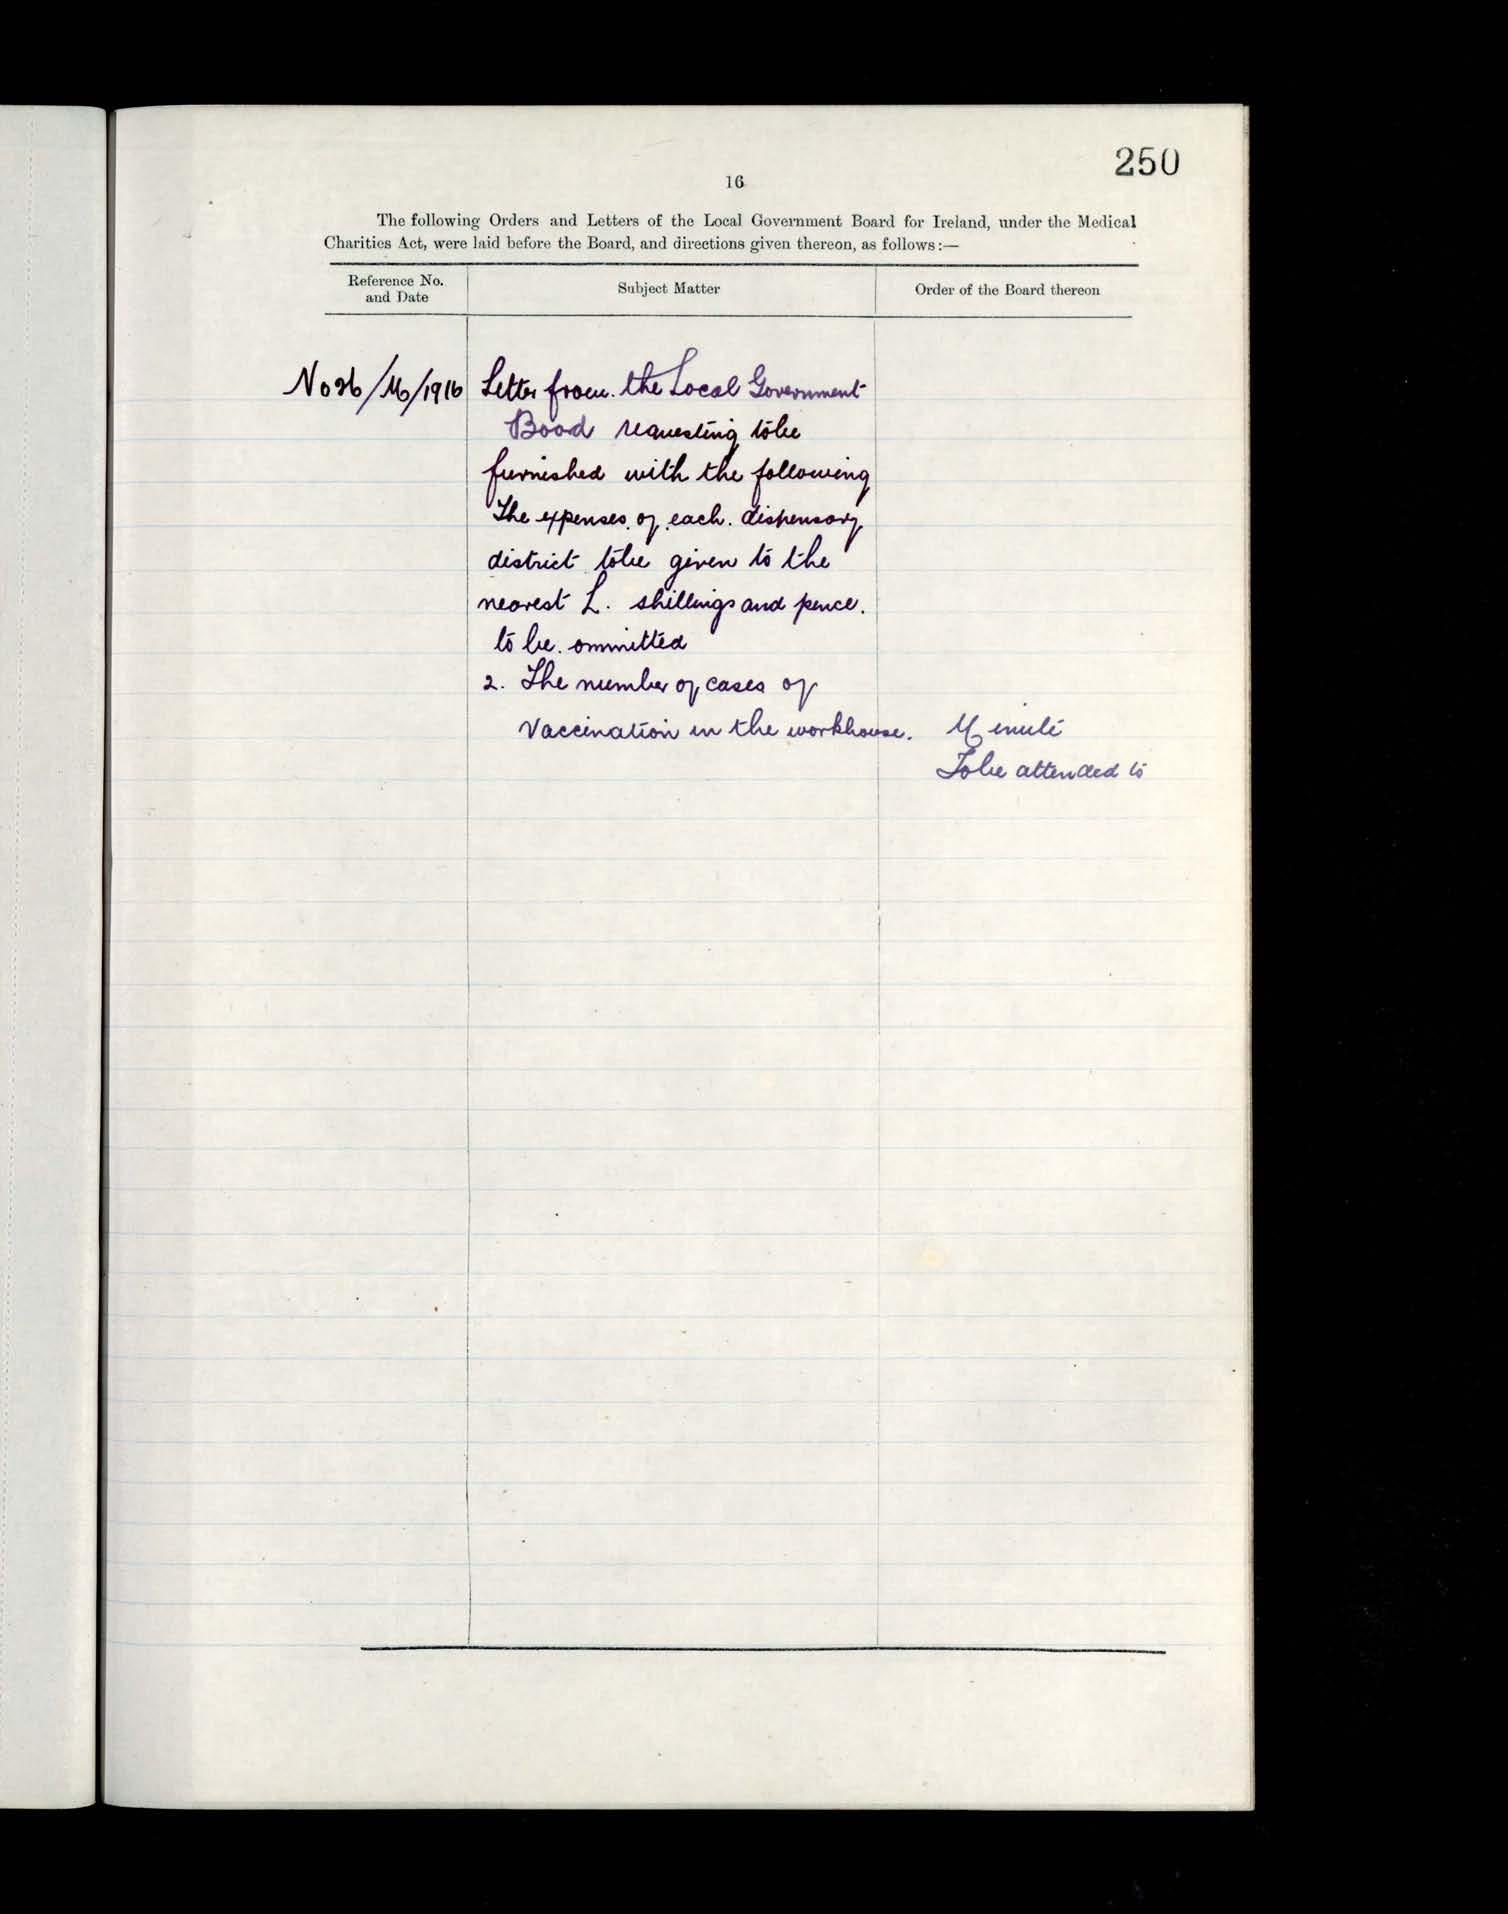 250
16
The following Orders and Letters of the Local Government Board for Ireland, under the Medical
Charities Act, were laid before the Board, and directions given thereon, as follows:—
Reference No.
and Date
Subject Matter
Order of the Board thereon
No 26/M/1916 Letter from. the Local Government
Board requesting to be
furnished with the following
The expenses of each. dispensary
district to be given to the
nearest £. shillings and pence.
to be. ommitted
2. The number of cases of
Vaccination in the workhouse. Minute
To be attended to